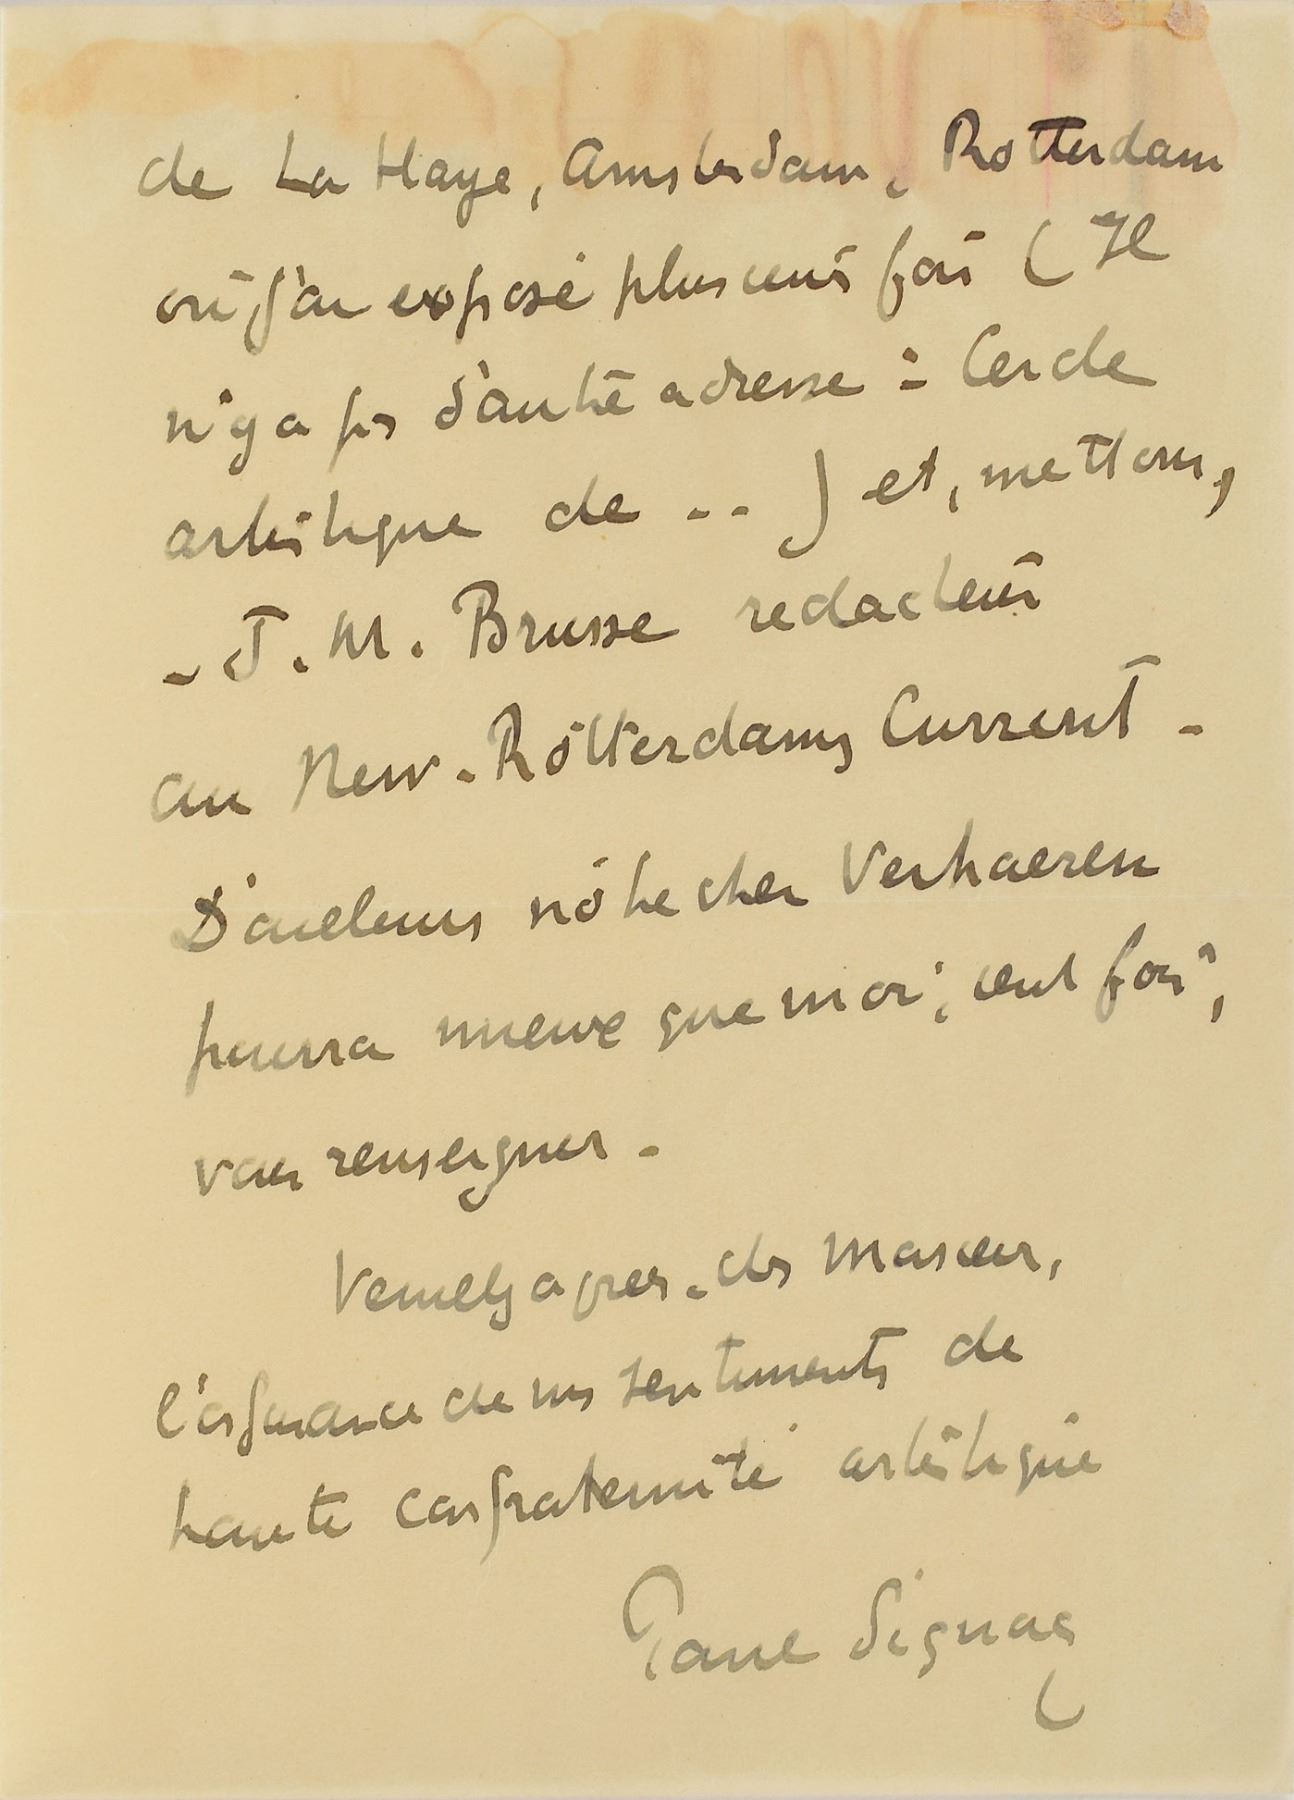 de La Haye, Amsterdam, Rotterdam
où j'ai exposé plusieurs fois (Il
n'y a pas d'autre adresse : Cercle
artistique de .. ) et, mettons,
- J. M. Brusse redacteur
au New-Rotterdams Current -
D'ailleurs notre cher Verhaeren
pourra mieux que moi, cent fois,
vous renseigner -
Veuillez agréer, cher Monsieur,
l'assurance de mes sentiments de
haute confraternité artistique
Paul Signac